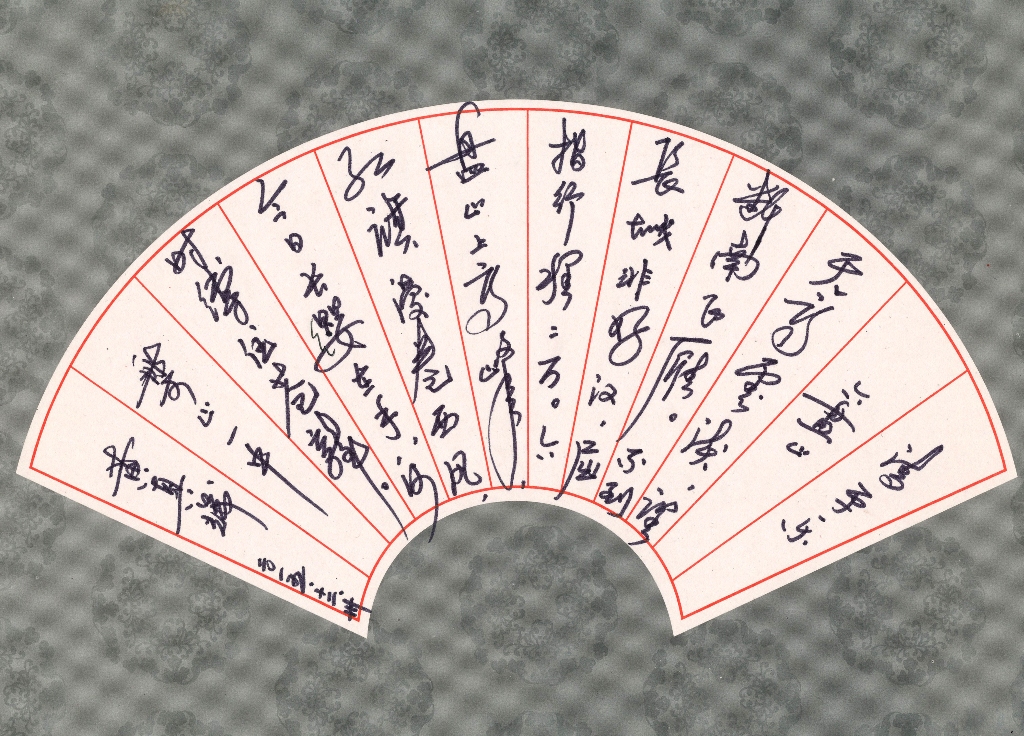 清平乐
六盘山
天高云淡，望
断南飞雁。不到
长城非好汉，屈
指行程二万。六
盘山上高峰，
红旗漫卷西风。
今日长缨在手，何
时缚住苍龙。